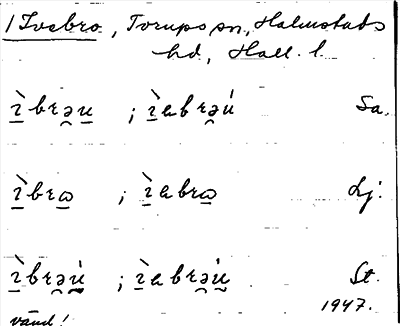 1 Ivebro, Torups sn, Halmstads
hd, Hall. l.
ì̲brə̯u̲ ; ì̲abrə̯ú Sa.
ì̲brɷ̲ ; ì̲abrɷ̲ Lj.
ì̲brə̯ú̲ ; ì̲abrə̯ú̲ St.
1947.
vänd!